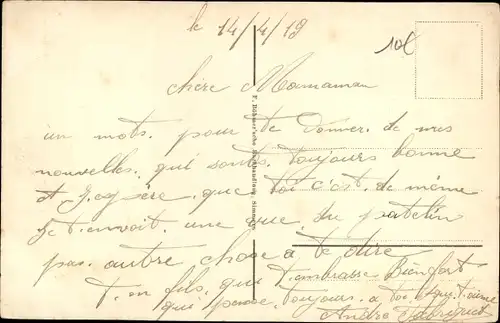 le 14/4/19
10f
chère Mamaman
un mots. pour te donner. de mes
nouvelles. qui sonts. toujours bonne
et J'espère. que toi c'est. de même
Je t'envoit. une vue du patelin
pas. autre. chose a te dire
Ton fils, qui t'embrasse Bien fort
qui pense. toujours. a toi et qui t'aime
André
F. Böhmer'sche Buchhandlung, Simmern